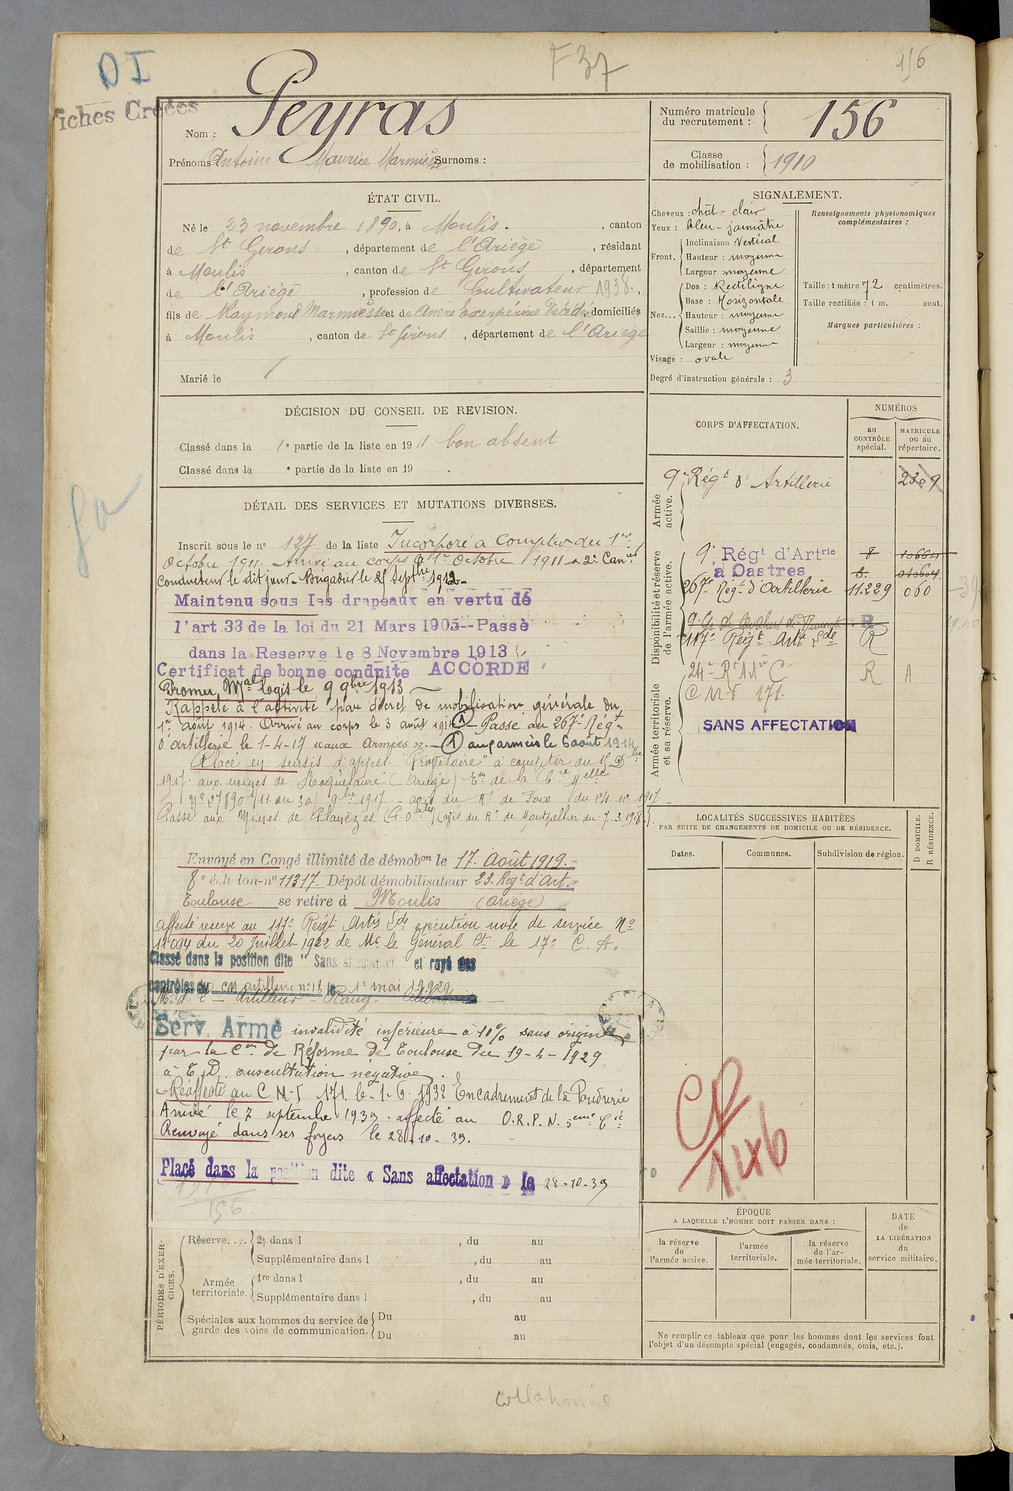 DI
F 37
156
Fiches Créées
Nom : Peyras
Numéro matricule
du recrutement : 156
Prénoms Antoine Maurice Surnoms :
Classe
de mobilisation : 1910
ÉTAT CIVIL.
Né le 23 novembre 1890, à Moulis , canton
de St Girons , département de l'Ariège , résidant
à Moulis , canton de St Girons , département
de l'Ariège , profession de Cultivateur 1938. ,
fils de Raymond et de décédée domiciliés
à Moulis , canton de St Girons , département de l'Ariège
Marié le
SIGNALEMENT.
Cheveux : chât - clair
Yeux : bleu - jaunâtre
Front. Inclinaison Vertical
Hauteur : moyenne
Largeur moyenne
Nez... Dos : Rectiligne
Base : Horizontale
Hauteur : moyenne
Saillie : moyenne
Largeur : moyenne
Visage : ovale
Renseignements physionomiques
complémentaires :
Taille : 1 mètre 72 centimètres.
Taille rectifiée : 1 m. cent.
Marques particulières :
Degré d'instruction générale : 3
DÉCISION DU CONSEIL DE REVISION.
Classé dans la 1e partie de la liste en 1911 bon absent
Classé dans la e partie de la liste en 19 .
CORPS D'AFFECTATION.
NUMÉROS
au
CONTRÔLE
spécial.
MATRICULE
ou au
répertoire.
Armée
active.
9e Régt d'Artillerie
Disponibilité et réserve
de l'armée active.
9e Régt d'Artrie
à Castres
267e Régt d'Artillerie 11.229 060
117e Régt Artie R
Armée territoriale
et sa réserve.
R A
C M I 171.
SANS AFFECTATION
DÉTAIL DES SERVICES ET MUTATIONS DIVERSES.
Inscrit sous le no 127 de la liste Incorporé à compter du 1er
Octobre 1911. Arrivé au corps le 1er Octobre 1911 - 2e Canr
Conducteur le dit jour - Brigadier le 25 Septbre 1912 -
Maintenu sous les drapeaux en vertu de
l'art.33 de la loi du 21 Mars 1905--Passé
dans la Reserve le 8 Novembre 1913
Certificat de bonne conduite ACCORDE
Promu Mal logis le 9 9bre 1913
Rappelé à l'activité par décret de mobilisation générale du
1er août 1914. Arrivé au corps le 3 août 1914 (1) - Passé au 267e Régt
d'artillerie le 1-4-17 (1) aux armées le 6 août 1914
Placé en sursis d'appel à compter du
1917 aux usines de
9bre 1917
Passé aux Mines de
Envoyé en Congé illimité de démobon le 17 Août 1919.-
8e échelon no 11317. Dépôt démobilisateur 23. Régt d'Art.
Toulouse se retire à Moulis (Ariège)
affecté réserve au 117e Régt Artie exécution note de service No
du 20 Juillet 1922 de Mr le Général Ct le 17e C. A.
Classé dans la position dite " Sans affectation " et rayé des
contrôles du cm artillerie no 18 le 1e mai 1929
Serv. Armé invalidité inférieure à 10% sans origine
par la Con de Réforme de Toulouse du 19-4-1929
à T.D. auscultation négative.
Réaffecté au C M-I 171 le 1-6-1932 Encadrement de la Poudrerie
Arrivé le 7 septembre 1939. affecté au O.R.P.N. 5eme Cie
Renvoyé dans ses foyers le 28-10-39.
Placé dans la position dite « Sans affectation » le 28-10-39
156.
LOCALITÉS SUCCESSIVES HABITÉES
PAR SUITE DE CHANGEMENTS DE DOMICILE OU DE RÉSIDENCE.
Dates.
Communes.
Subdivision de région.
D DOMICILE.
R RÉSIDENCE.
CR
1446
ÉPOQUE
A LAQUELLE L'HOMME DOIT PASSER DANS :
la réserve
de
l'armée active.
l'armée
territoriale.
la réserve
de l'ar-
mée territoriale.
DATE
de
LA LIBÉRATION
du
service militaire.
PÉRIODES D'EXER-
CICES.
Réserve. . . . 2e dans l , du au
Supplémentaire dans l , du au
Armée
territoriale. 1re dans l , du au
Supplémentaire dans l , du au
Spéciales aux hommes du service de
garde des voies de communication. Du au
Du au
Ne remplir ce tableau que pour les hommes dont les services font
l'objet d'un décompte spécial (engagés, condamnés, omis, etc.).